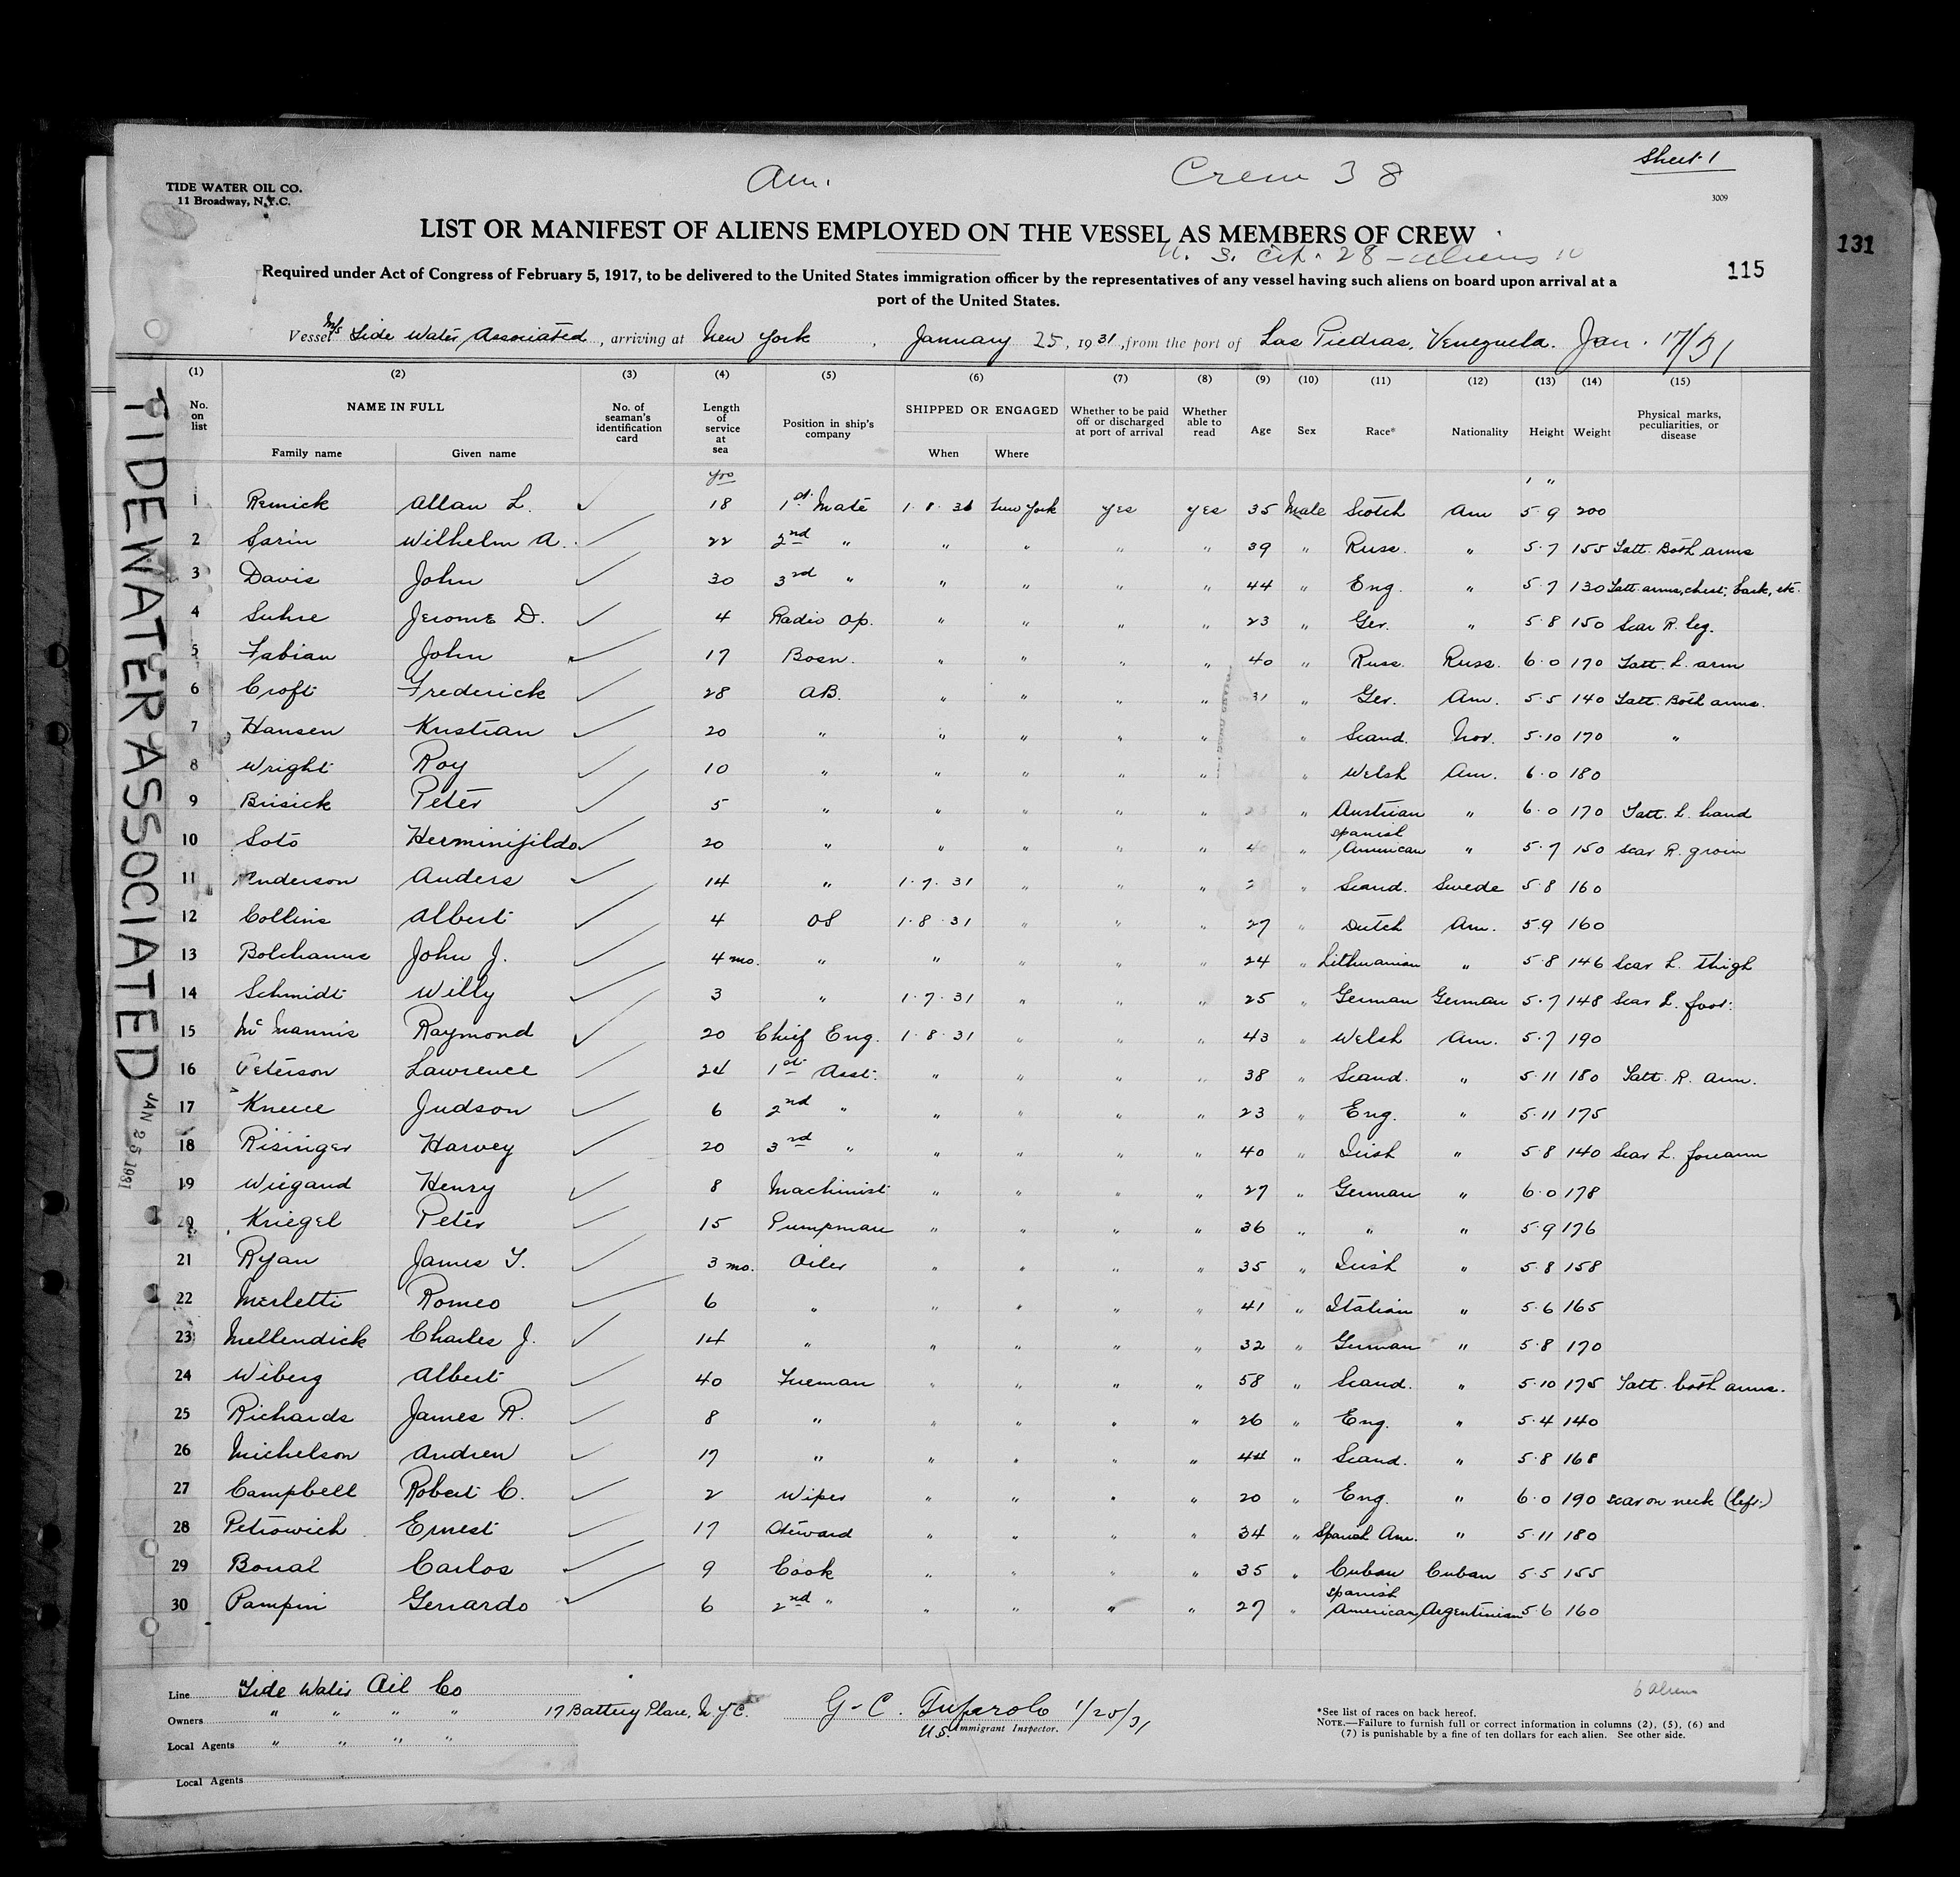 Sheet 1
Am. Crew 38
TIDE WATER OIL CO.
11 Broadway, N.Y.C.
3009
LIST OR MANIFEST OF ALIENS EMPLOYED ON THE VESSEL AS MEMBERS OF CREW
131
U. S. cit. 28 - aliens 10
115
Required under Act of Congress of February 5, 1917, to be delivered to the United States immigration officer by the representatives of any vessel having such aliens on board upon arrival at a
port of the United States.
Vessel M/s Tide Water Associated, arriving at New York, January 25, 1931, from the port of Las Piedras, Venezuela. Jan. 17/31
(1) (2) (3) (4) (5) (6) (7) (8) (9) (10) (11) (12) (13) (14) (15)
No. on list NAME IN FULL Family name Given name No. of seaman's identification card Length of service at sea Position in ship's company SHIPPED OR ENGAGED When Where Whether to be paid off or discharged at port of arrival Whether able to read Age Sex Race* Nationality Height Weight Physical marks, peculiarities, or disease
yrs ' "
1 Remick Allan L. 18 1st Mate 1·8·31 New York yes yes 35 Male Scotch Am 5·9 200
2 Sarin Wilhelm A. 22 2nd " " " " " 39 " Russ. " 5·7 155 Tatt. Both arms
3 Davis John 30 3rd " " " " " 44 " Eng. " 5·7 130 Tatt. arms, chest, back, etc.
4 Suhre Jerome D. 4 Radio Op. " " " " 23 " Ger. " 5·8 150 Scar R. leg.
5 Fabian John 17 Bosn. " " " " 40 " Russ. Russ. 6·0 170 Tatt. L. arm
6 Croft Frederick 28 AB. " " " " 31 " Ger. Am. 5·5 140 Tatt. Both arms.
7 Hansen Kristian 20 " " " " " " Scand. Nor. 5·10 170 "
8 Wright Roy 10 " " " " " " Welsh Am. 6·0 180
9 Brisick Peter 5 " " " " " " Austrian " 6·0 170 Tatt. L. hand
10 Soto Herminijildo 20 " " " " " " Spanish American " 5·7 150 scar R. groin
11 Anderson Anders 14 " 1·7·31 " " " " Scand. Swede 5·8 160
12 Collins Albert 4 OS 1·8·31 " " " 27 " Dutch Am. 5·9 160
13 Bolchanus John J. 4 mo. " " " " " 24 " Lithuanian " 5·8 146 Scar L. thigh
14 Schmidt Willy 3 " 1·7·31 " " " 25 " German German 5·7 148 Scar L. foot.
15 McMannis Raymond 20 Chief Eng. 1·8·31 " " " 43 " Welsh Am. 5·7 190
16 Peterson Lawrence 24 1st Asst. " " " " 38 " Scand. " 5·11 180 Tatt. R. arm.
17 Kneece Judson 6 2nd " " " " " 23 " Eng. " 5·11 175
18 Risinger Harvey 20 3rd " " " " " 40 " Irish " 5·8 140 Scar L. forearm
19 Wiegand Henry 8 Machinist " " " " 27 " German " 6·0 178
20 Kriegel Peter 15 Pumpman " " " " 36 " " " 5·9 176
21 Ryan James T. 3 mo. Oiler " " " " 35 " Irish " 5·8 158
22 Merletti Romeo 6 " " " " " 41 " Italian " 5·6 165
23 Mellendick Charles J. 14 " " " " " 32 " German " 5·8 170
24 Wiberg Albert 40 Fireman " " " " 58 " Scand. " 5·10 175 Tatt. both arms.
25 Richards James R. 8 " " " " " 26 " Eng. " 5·4 140
26 Michelson Andrew 17 " " " " " 44 " Scand. " 5·8 168
27 Campbell Robert C. 2 Wiper " " " " 20 " Eng. " 6·0 190 scar on neck (left)
28 Petrowich Ernest 17 Steward " " " " 34 " Spanish Am. " 5·11 180
29 Boual Carlos 9 Cook " " " " 35 " Cuban Cuban 5·5 155
30 Pampin Gerrardo 6 2nd " " " " " 27 " Spanish American Argentinian 5·6 160
TIDEWATER ASSOCIATED
JAN 25 1931
6 Aliens
Line Tide Water Oil Co
Owners " " " " 17 Battery Place, N.Y.C.
Local Agents " " " "
Local Agents
G. C. 1/25/31
U.S. Immigrant Inspector.
*See list of races on back hereof.
NOTE.—Failure to furnish full or correct information in columns (2), (5), (6) and
(7) is punishable by a fine of ten dollars for each alien. See other side.